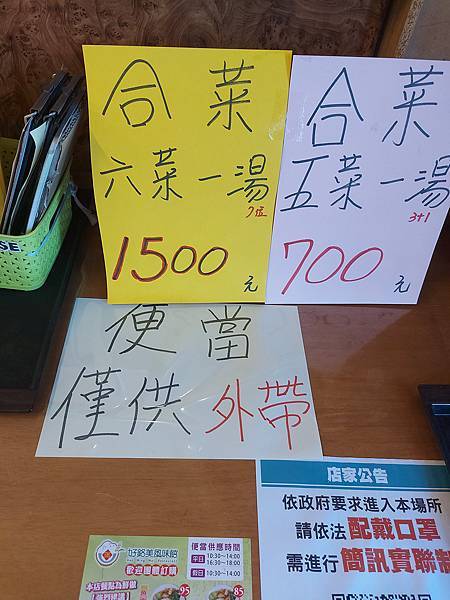 合菜
六菜一湯
7位
1500元
合菜
五菜一湯
3+1
700元
便當
僅供外帶
店家公告
依政府要求進入本場所
請依法配戴口罩
需進行簡訊實聯制
好銘美風味館
歡迎團體訂購
便當供應時間
平日 10:30~14:00
16:30~18:00
假日 10:30~14:00
本店餐點為鮮做
95
85